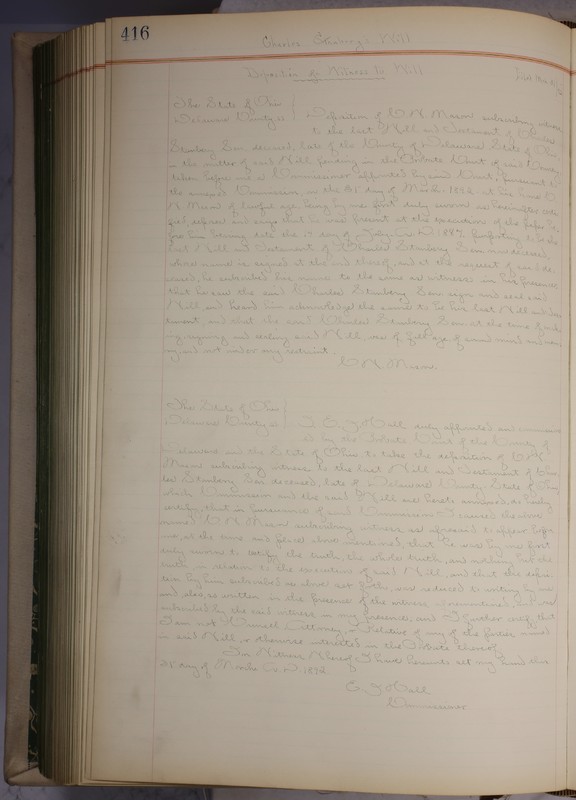 416
Charles Stembery's Will
Deposition of Witness to Will
Filed Mar
The State of Ohio
Delaware County ss
Deposition of C. N. Mason subscribing witness
to the last Will and Testament of Charles
Sen. deceased, late of the County of Delaware State of Ohio
in the matter of said Will pending in the Probate Court of said County
taken before me a Commissioner appointed by said Court, pursuant to
the annexed Commission, on the 31 day of March 1892, at
N Mason of lawful age being by me first duly sworn as hereinafter certi-
fied, deposes and says that he was present at the execution of the paper
bearing date the day of July A. D. 1887, purporting to be the
last Will and Testament of Charles Sen. now deceased,
whose name is signed at the end thereof, and at the request of said de-
ceased, he subscribed his name to the same as witness in his presence
that he saw the said Charles Sen sign and seal said
Will and heard him acknowledge the same to be his last Will and Tes-
tament, and that the said Charles Sen. at the time of mak-
ing, signing and sealing said Will, was of full age of sound mind and mem-
ory, and not under any restraint.
C N Mason.
The State of Ohio
Delaware County ss
I, E. J. Hall duly appointed and commission-
ed by the Probate Court of the County of
Delaware and the State of Ohio to take the deposition of C. N.
Mason subscribing witness to the last Will and Testament of Char-
les Sen. deceased, late of Delaware County State of Ohio
which Commission and the said Will are hereto annexed, do hereby
certify, that in pursuance of said Commission I caused the above
named C N Mason subscribing witness as aforesaid to appear before
me, at the time and place above mentioned, that he was by me first
duly sworn to testify the truth, the whole truth, and nothing but the
truth in relation to the execution of said Will, and that the deposi-
tion by him subscribed as above set forth, was reduced to writing by me
and also, so written in the presence of the witness and was
subscribed by the said witness in my presence, and I further certify that
I am not Counsel, Attorney, or Relative of any of the parties named
in said Will, or otherwise interested in the Probate thereof.
In Witness Whereof I have hereunto set my hand this
31st day of March A. D. 1892
E. J. Hall
Commissioner